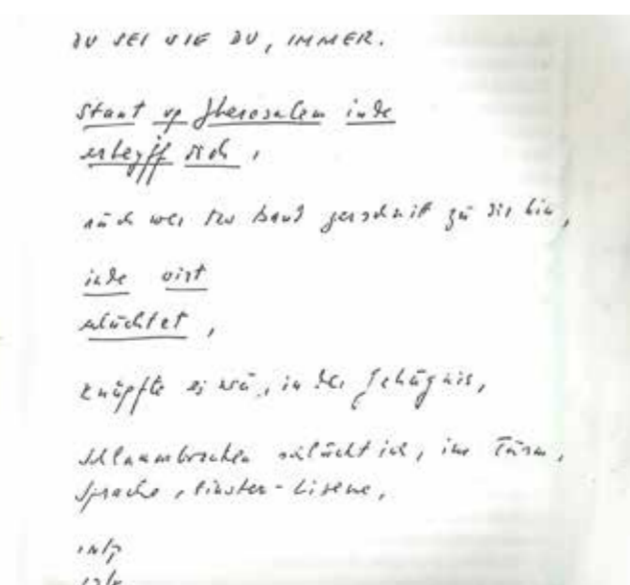 DU SEI WIE DU, IMMER.
Stant up Jherosalem inde
erheyff dich,
auch wer das Band zerschnitt zu dir hin,
inde wirt
erluchtet,
knüpfte es neu, in der Gehugnis,
Schlammbrocken schluckt ich, im Turm,
Sprache, Finster-Lisene,